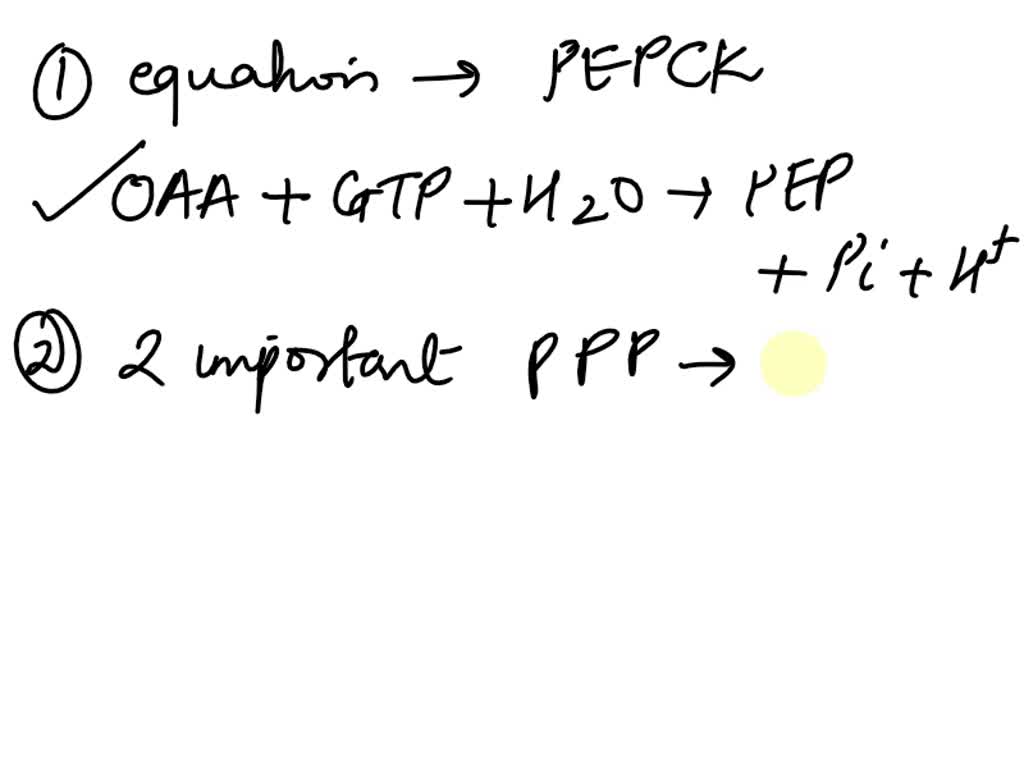 ① equation → PEPCK
✓ OAA + GTP + H2O → PEP
+ Pi + H+
② 2 important PPP →